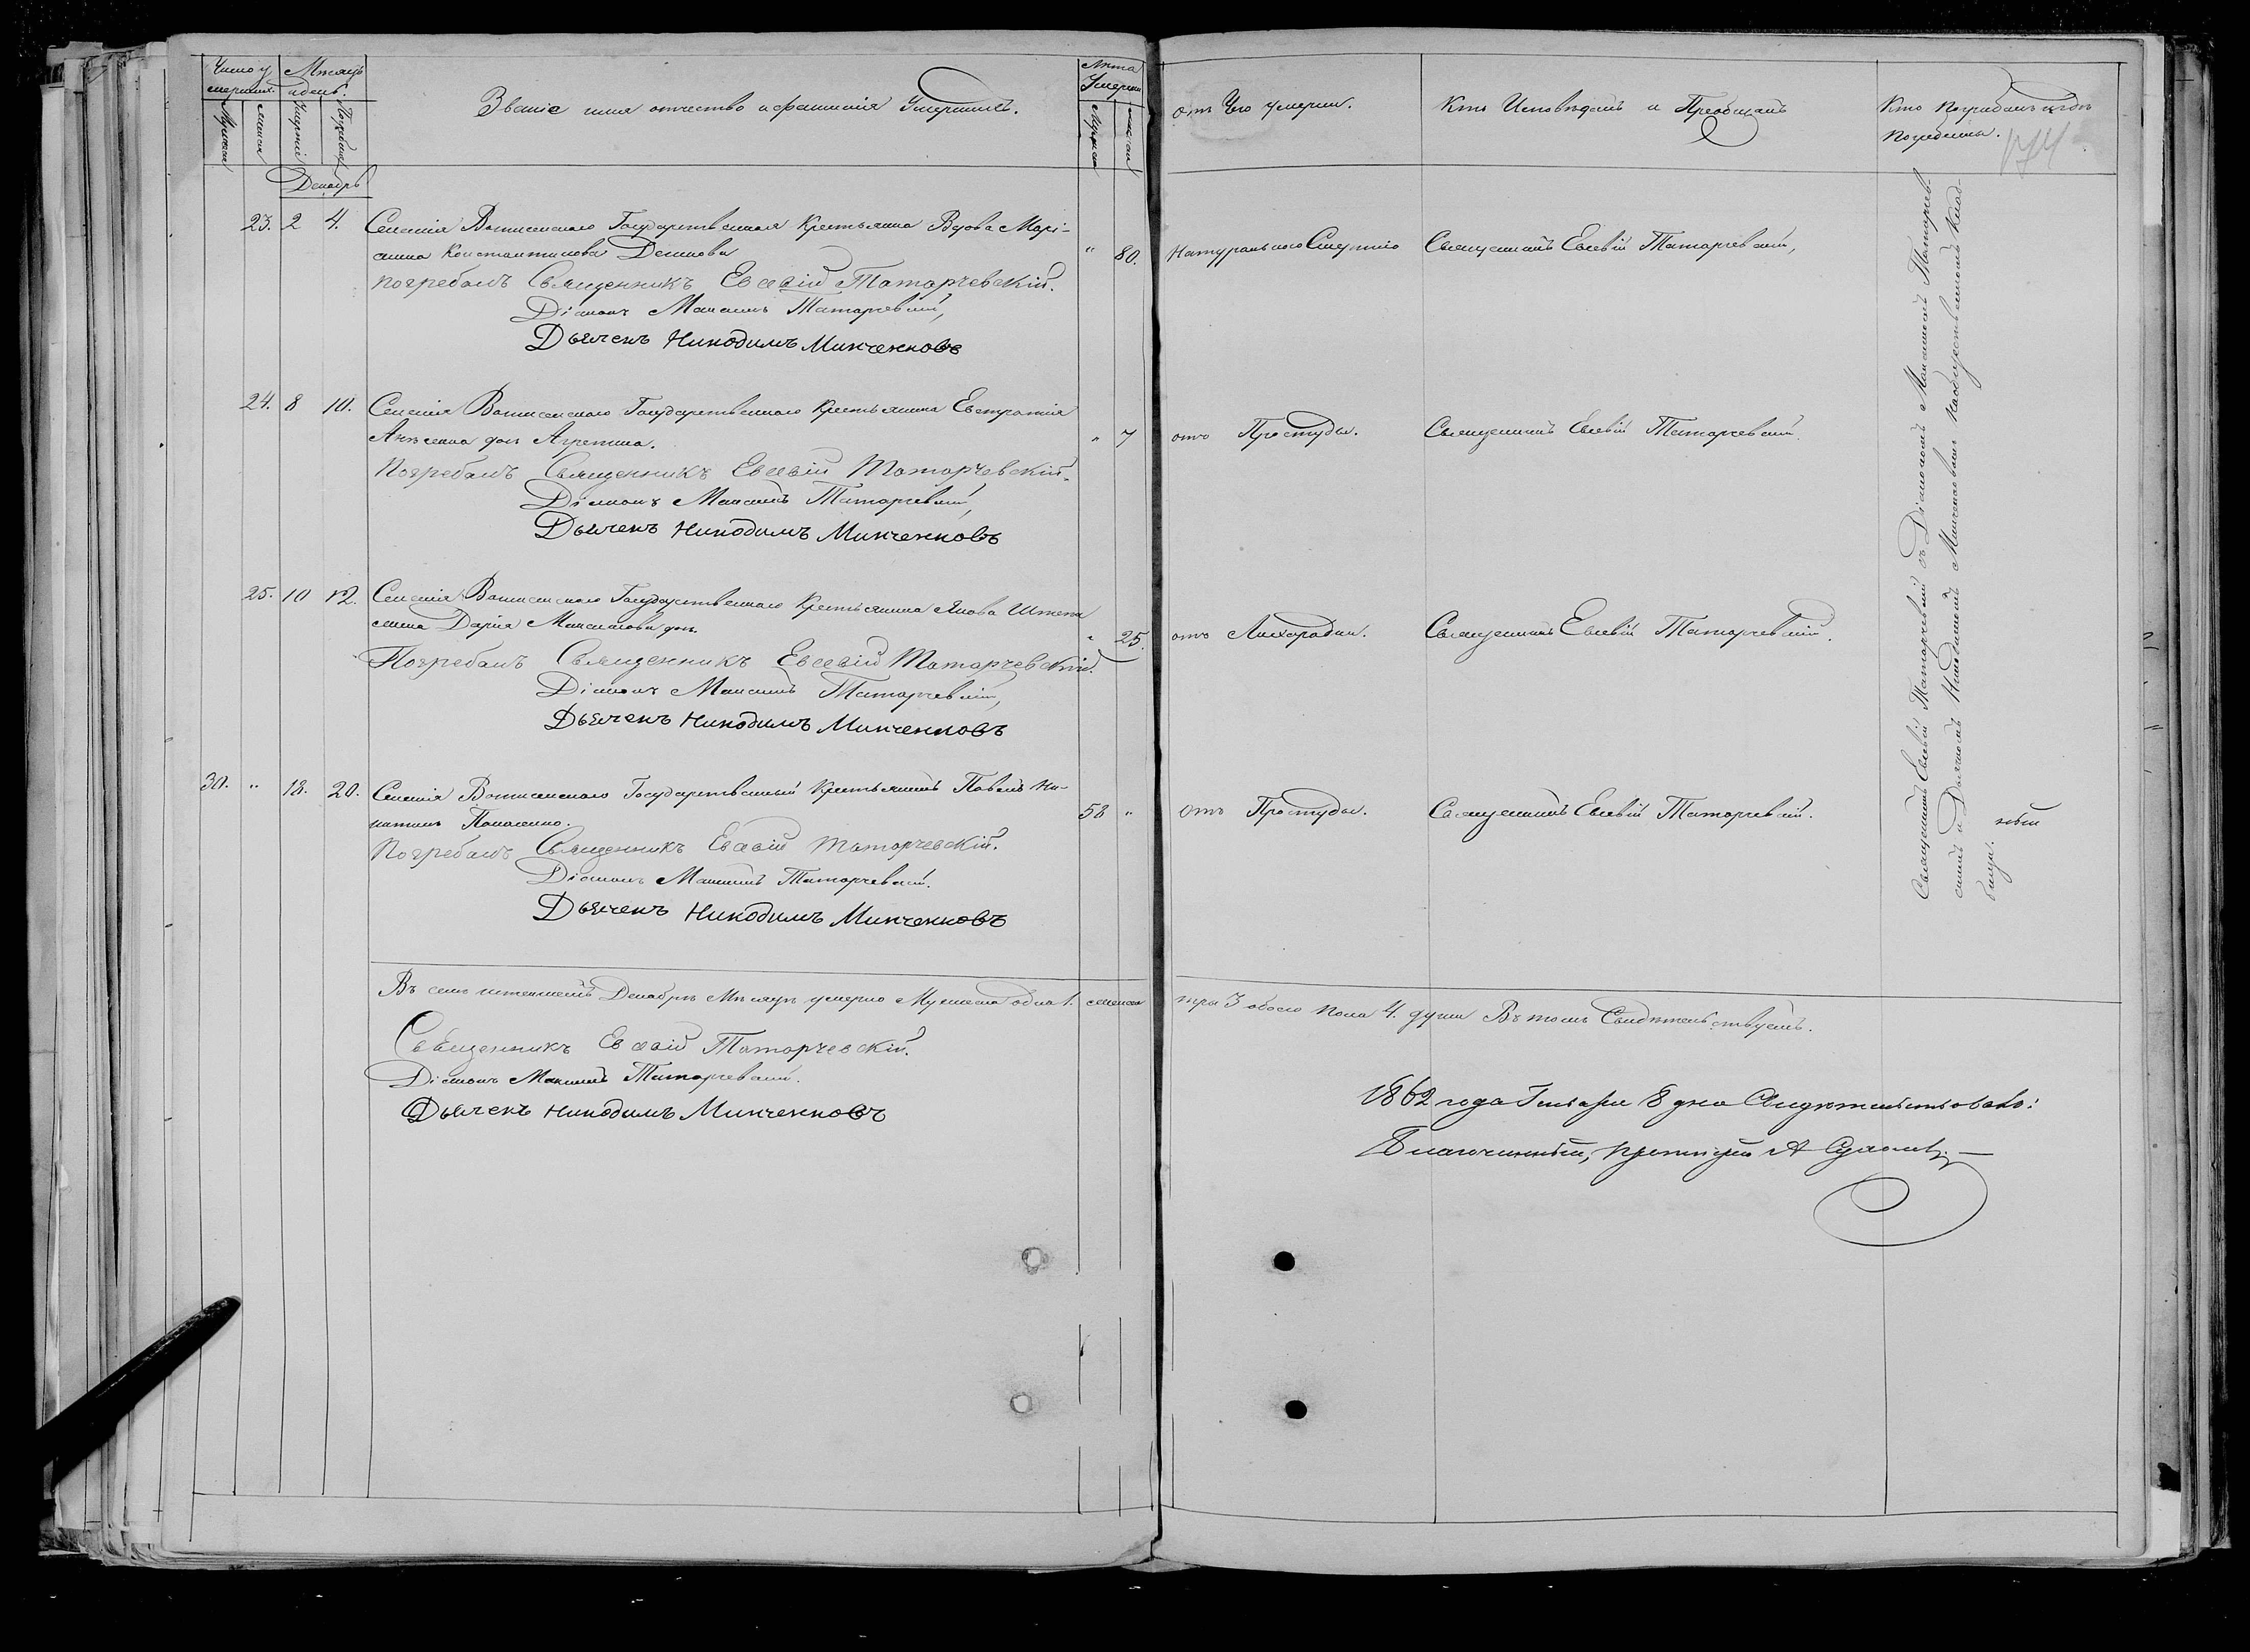 Число у
мершихъ.
Мѣсяцъ
и день.
Мужска
женска
Умертія
Погребенія
Званіе имя отчество и фамилія Умершихъ.
Лѣта
Умерши
Мужска
женска
отъ Чего умерли.
Кто Исповѣдалъ и Пріобщалъ
Кто Погребалъ и гдѣ
Погребены.
174
Декабрь
23. 2 4. Селенія Государственнаго Крестьянина Вдова Марі-
анна Константинова " 80. Натуральною Смертію Священникъ Евсевій Татарчевскій,
погребалъ Священникъ Евсевій Татарчевскій.
Діаконъ Максимъ Татарчевскій,
Дьячекъ Никодимъ Минченковъ
24. 8 10. Селенія Государственнаго Крестьянина Евстратія
дочь Агрепина. " 7 отъ Простуды. Священникъ Евсевій Татарчевскій.
Погребалъ Священникъ Евсевій Татарчевскій.
Діаконъ Максимъ Татарчевскій,
Дьячекъ Никодимъ Минченковъ
25. 10 12. Селенія Государственнаго Крестьянина Якова
жена Дарія Максимова " 25. отъ Лихорадки. Священникъ Евсевій Татарчевскій.
Погребалъ Священникъ Евсевій Татарчевскій.
Діаконъ Максимъ Татарчевскій,
Дьячекъ Никодимъ Минченковъ
30. " 18. 20. Селенія Государственный Крестьянинъ Павелъ Ни-
китинъ 58 " отъ Простуды. Священникъ Евсевій Татарчевскій.
Погребалъ Священникъ Евсевій Татарчевскій.
Діаконъ Максимъ Татарчевскій.
Дьячекъ Никодимъ Минченковъ
Священникъ Евсевій Татарчевскій съ Діакономъ Максимомъ Татарчев-
скимъ и Дьячкомъ Никодимомъ Минченковымъ на общественномъ Клад-
бищѣ.
Въ семъ Декабрѣ Мѣсяцѣ умерло Мужеска одна 1. женска три 3 обоего пола 4. души Въ томъ Свидѣтельствуемъ.
Священникъ Евсевій Татарчевскій.
Діаконъ Максимъ Татарчевскій.
Дьячекъ Никодимъ Минченковъ
1862 года Генваря 8 дня Свидѣтельствовалъ:
Благочинный, протоіерей А